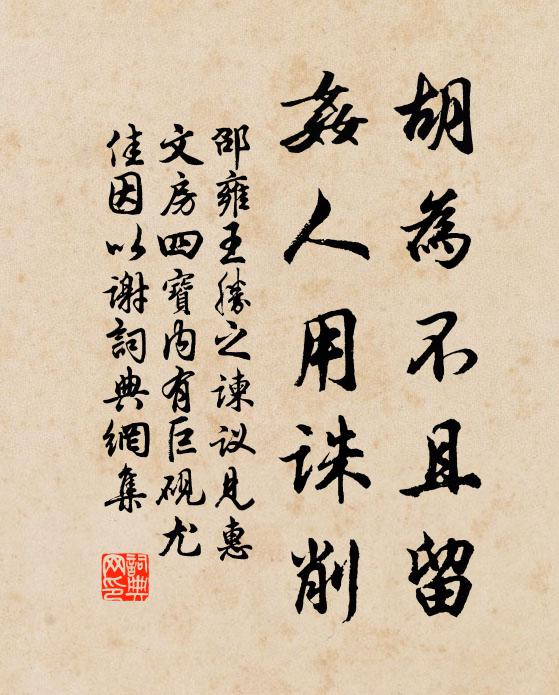 胡為不且留
姦人用誅削
邵雍王勝之諫议見惠
文房四寶内有巨硯尤
佳因以谢詞典網集
詞典
网印